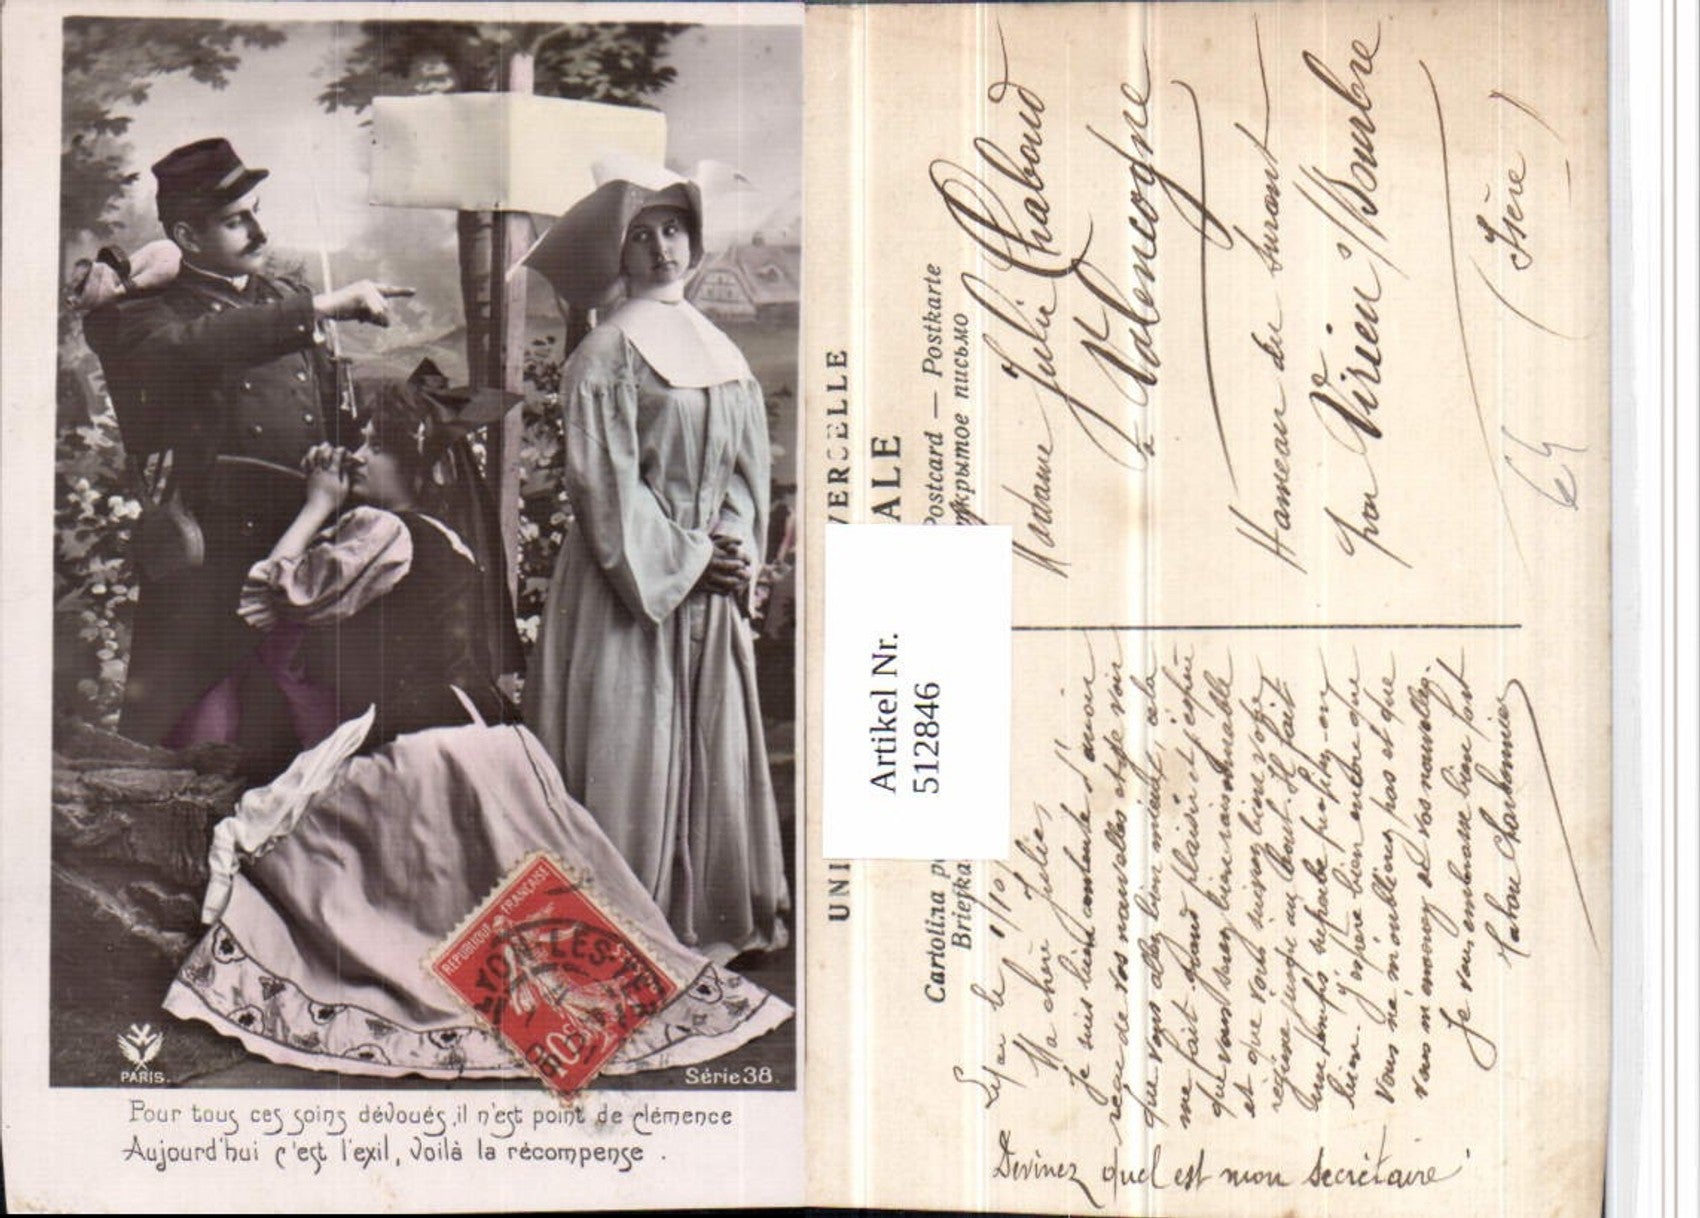 PARIS.
Série 38
Pour tous ces soins dévoués, il n'est point de clémence
Aujourd'hui c'est l'exil, voilà la récompense.
REPUBLIQUE FRANÇAISE
10c
LYON-LES-TER
UNI VERSELLE
ALE
Postcard — Postkarte
Cartolina po
Briefka
открытое письмо
Artikel Nr.
5128846
Madame Julie Chaboud
à Valencogne
Hameau du
par Virieu s/ Bourbre
(Isère)
Lyon le 1/10
Ma chère Julie,
Je suis bien contente d'avoir
reçu de vos nouvelles et de voir
que vous allez bien mieux, cela
me fait grand plaisir et j'espère
que vous serez bien raisonnable
et que vous suivrez bien votre
régime jusqu'au bout. Il fait
un temps superbe
bien. J'espère bien encore que
vous ne m'oubliez pas et que
vous m'enverrez de vos nouvelles
Je vous embrasse bien fort
Charbonnier
Devinez quel est mon secrétaire